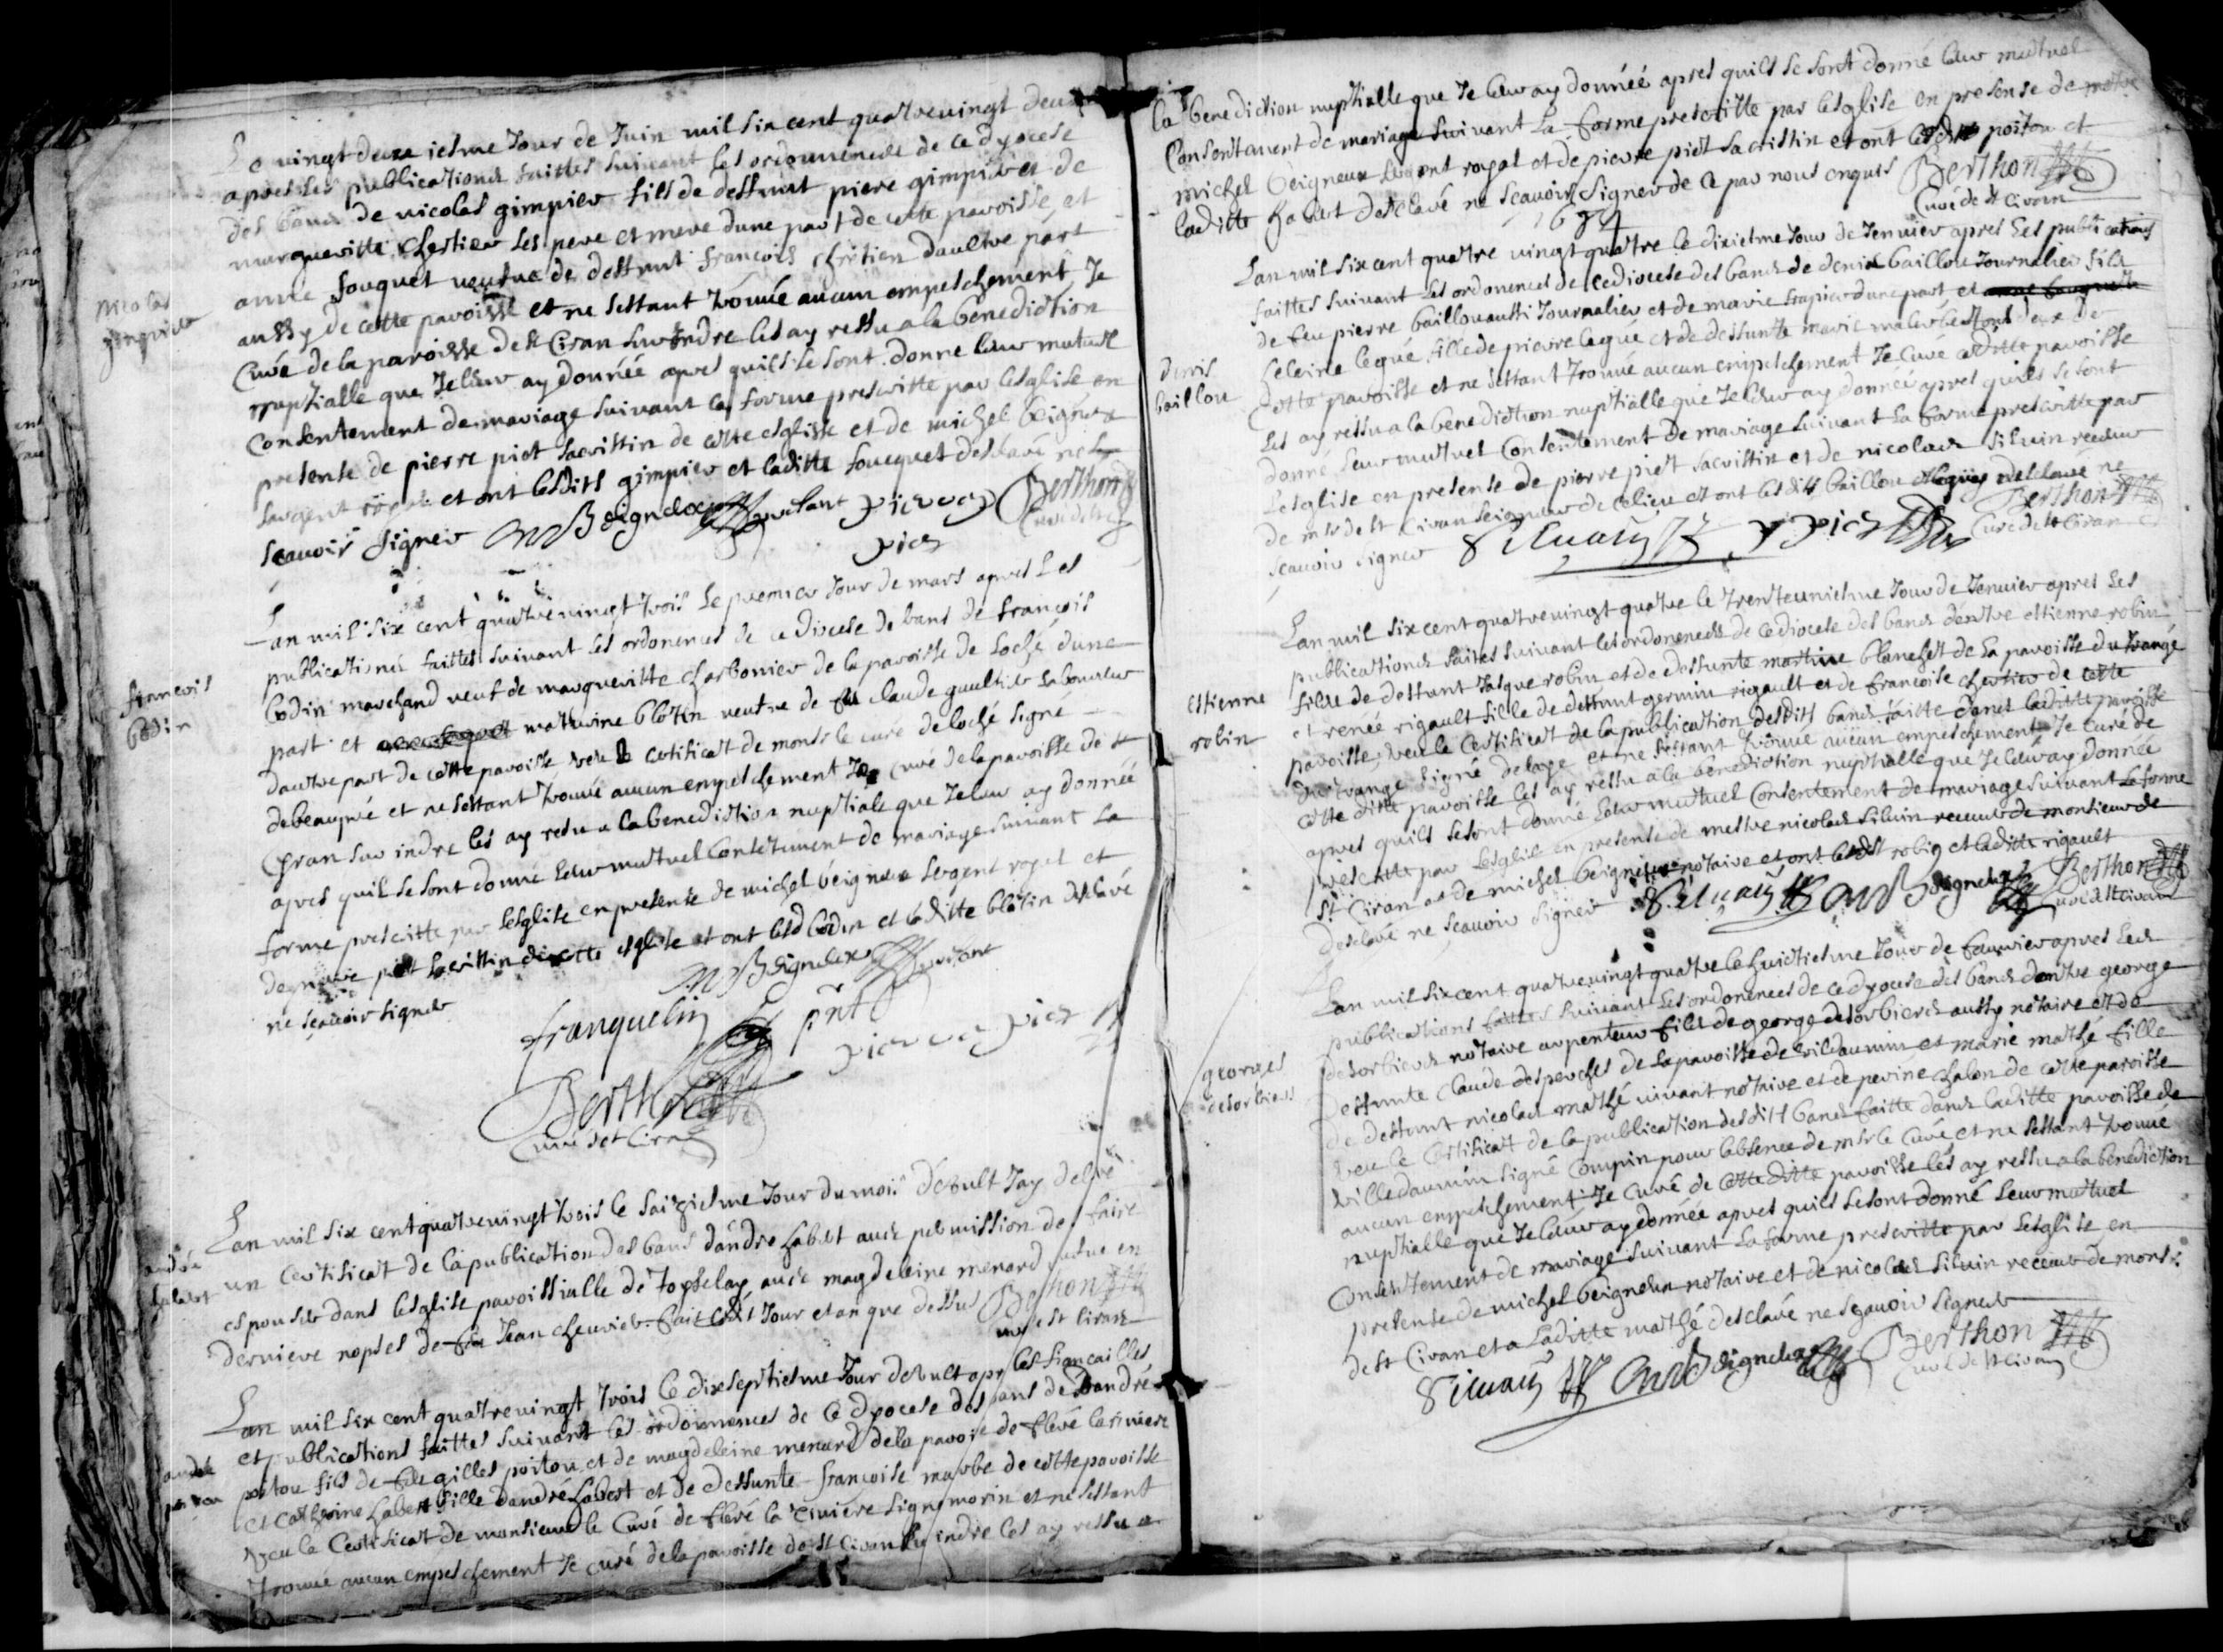 Le vingt deuxiesme Jour de Juin mil six cent quatrevingt deux
apres les publications faittes suivant les ordonnences de ce dyocese
des bans de nicolas gimpier fils de deffunt piere gimpier et de
margueritte chertier ses pere et mere dune part de cette paroisse et
anne fouquet veufve de deffunt françois chrétien daultre part
aussy de cette paroisse et ne sestant trouué aucun empeschement Je
nicolas
gimpier
Curé de la paroisse de st Ciran sur Indre les ay ressu a la benediction
nuptialle que Je leur ay donnéé apres quils se sont donne leur mutuel
Consentement de mariage suivant la forme prescritte par lesglise en
presente de pierre piet sacristin de cette esglise et de michel beigneux
sergent royal et ont lesdits gimpier et laditte foucquet desclaré ne
scauoir signer M Beigneux Pierre Berthon
piet Curé de st
Lan mil six cent quatrevingt trois le premier Jour de mars apres les
publications faittes suivant les ordonences de ce diocese de bans de françois
françois
bodin
bodin marchand veuf de margueritte charbonier de la paroisse de loché dune
part et mathurine blotin veufve de feu claude gaultier laboureur
dautre part de cette paroisse veu le certificat de monsr le curé de loché signé
debeaupré et ne sestant trouué aucun empeschement Je curé de la paroisse de st
Cyran sur indre les ay resu a la benediction nuptiale que Je leur ay donnéé
apres quil se sont donné leur mutuel Consetement de mariage suivant la
forme prescritte par lesglise en presente de michel beigneux sergent royal et
de piet sacristin de cette esglise et ont led bodin et laditte blotin desclaré
ne scauoir signer
M Beigneux
franquelin pnt
pierre piet
Berthon
Curé de st Ciran
Lan mil six cent quatrevingt trois le saiziesme Jour du mois dEoult Jay deliré
andré
habert
un Certificat de la publication des bans dandre habert auec permission de faire
espouser dans lesglise paroissialle de toyselay auec magdeleine menard veufve en
derniere nopses de feu Jean cheurier fait led Jour et an que dessus Berthon
curé de st Ciran
Lan mil six cent quatrevingt trois le dixseptiesme Jour dEoult apres les fiancailles
et publications faittes suivant les ordonnences de ce dyocese des bans de Dandré
andré
poitou
poitou fils de feu gilles poitou et de magdeleine menard de la paroise de fleré la riviere
et Catherine habert fille dandré habert et de deffunte françoise marbe de cette paroisse
veu le Certificat de monsieur le Curé de fleré la riviere signé morin et ne sestant
trouué aucun empeschement Je curé de la paroisse de st Ciran sur indre les ay ressu a
la benediction nuptialle que Je leur ay donnéé apres quils se sont donné leur mutuel
Consentement de mariage suivant la forme prescritte par lesglise en presente de
michel beigneux sergent royal et de pierre piet sacristin et ont lesdits poitou et
laditte habert desclaré ne scauoir signer de ce par nous enquis Berthon
Curé de st Ciran
1684
Lan mil six cent quatre vingt quatre le dixiesme Jour de Jenuier apres les publications
faittes suivant les ordonences de ce diocese des bans de denis baillou Journalier fils
de feu pierre baillou aussi Journalier et de marie frapier dune part et
denis
baillou
seleine legué fille de pierre legué et de deffunte marie tous deux de
cette paroisse et ne sestant trouué aucun empeschement Je Curé paroisse
les ay ressu a la benediction nuptialle que Je leur ay donnéé apres quils se sont
donné leur mutuel Consentement de mariage suivant la forme prescritte par
lesglise en presente de pierre piet sacristin et de nicolas siluin receueur
de mr de st Ciran seigneur de ce lieu et ont lesdits baillou et legué desclaré ne
scauoir signer Siluain p piet Berthon
Curé de st Ciran
Lan mil six cent quatrevingt quatre le trenteuniesme Jour de Jenuier apres les
publications faites suivant les ordonences de ce diocese des bans dentre estienne robin
estienne
robin
filx de deffunt Jasque robin et de deffunte martine blanchet de la paroisse du trange
et renée rigault fille de deffunt germin rigault et de francoise chertier de cette
paroisse, veu le Certificat de la publication desdits bans faitte dans laditte paroisse
du trange signé delage et ne sestant trouué aucun empeschement Je Curé de
cette ditte paroisse les ay ressu a la benediction nuptialle que Je leur ay donnée
apres quils se sont donné leur mutuel Consentement de mariage suivant la forme
prescritte par lesglise en presente de mestre nicolas siluin receueur de monsieur de
st Ciran et de michel beigneux notaire et ont lesdit robin et laditte rigault
desclaré ne scauoir signer Siluain M Beigneux Berthon
Curé de st Ciran
Lan mil six cent quatrevingt quatre le huictiesme Jour de feurier apres les
publications faittes suivant les ordonences de ce dyocese des bans dentre george
georges
desorbiers
desorbiers notaire arpenteur fils de george desorbiers aussy notaire et de
deffunte Claude desperches de la paroisse de villedaumin et marie mathé fille
de deffunt nicolas mathé vivant notaire et de perine chalon de cette paroisse
veu le Certificat de la publication desdits bans faitte dans laditte paroisse de
villedaumin signé Compin pour labsence de mr le Curé et ne sestant trouué
aucun empeschement Je Curé de cette ditte paroisse les ay ressu a la benediction
nuptialle que Je leur ay donnée apres quils se sont donné leur mutuel
Consentement de mariage suivant la forme prescritte par lesglise en
presente de michel beigneux notaire et de nicolas siluin receueur de monsr
de st Ciran et a laditte mathé desclaré ne scauoir signer
Siluain M Beigneux Berthon
Curé de st Ciran